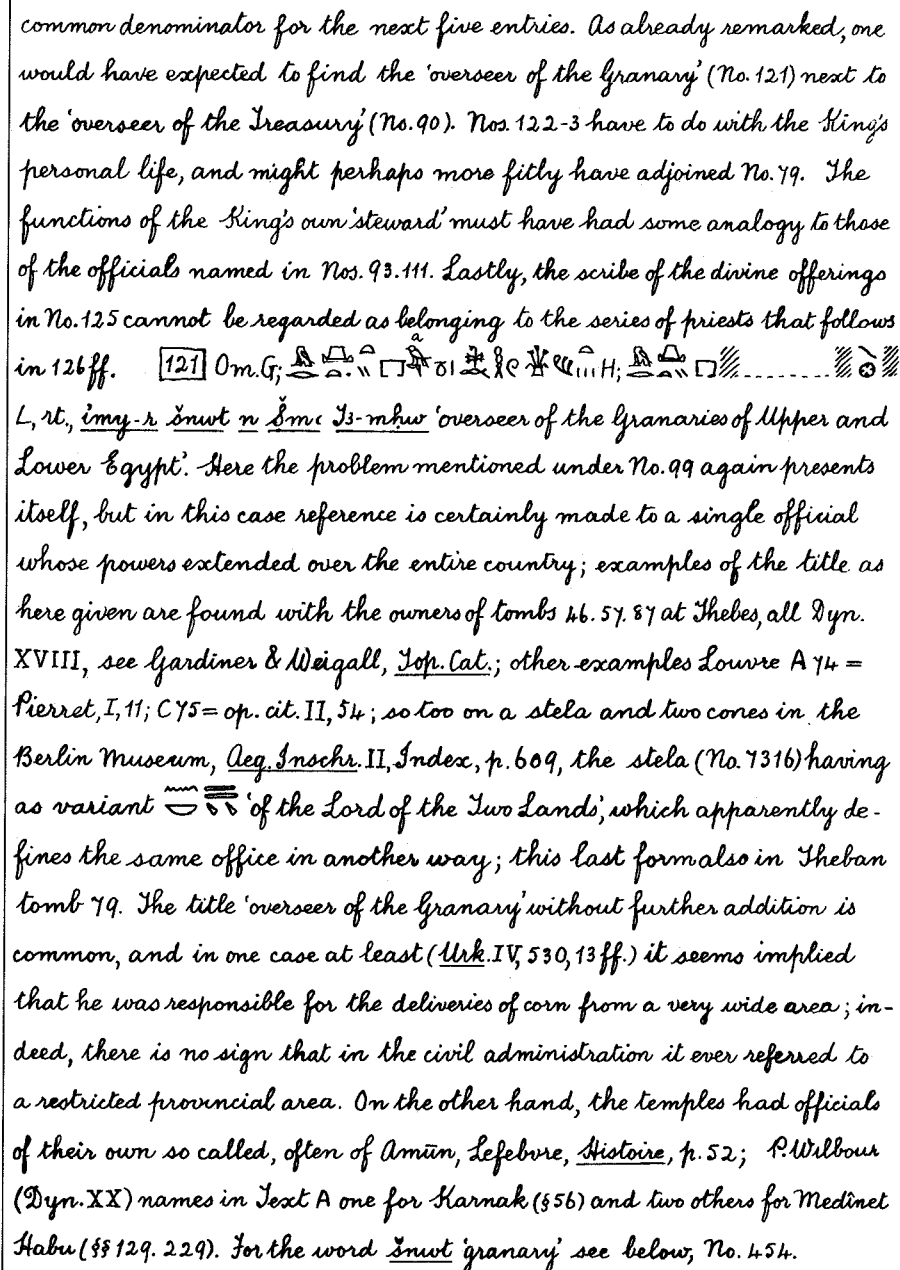 common denominator for the next five entries. As already remarked, one
would have expected to find the ‘overseer of the Granary’ (No. 121) next to
the ‘overseer of the Treasury’ (No. 90). Nos. 122-3 have to do with the King's
personal life, and might perhaps more fitly have adjoined No. 79. The
functions of the King's own ‘steward’ must have had some analogy to those
of the officials named in Nos. 93. 111. Lastly, the scribe of the divine offerings
in No. 125 cannot be regarded as belonging to the series of priests that follows
in 126 ff. 121 Om. G; H;
L, rt., i̓my-r šnwt n Šmꜥ Tꜣ-mḥw ‘overseer of the Granaries of Upper and
Lower Egypt’. Here the problem mentioned under No. 99 again presents
itself, but in this case reference is certainly made to a single official
whose powers extended over the entire country; examples of the title as
here given are found with the owners of tombs 46. 57. 87 at Thebes, all Dyn.
XVIII, see Gardiner & Weigall, Top. Cat.; other examples Louvre A 74 =
Pierret, I, 11; C 75 = op. cit. II, 54; so too on a stela and two cones in the
Berlin Museum, Aeg. Inschr. II, Index, p. 609, the stela (No. 7316) having
as variant ‘of the Lord of the Two Lands’, which apparently de-
fines the same office in another way; this last form also in Theban
tomb 79. The title ‘overseer of the Granary’ without further addition is
common, and in one case at least (Urk. IV, 530, 13 ff.) it seems implied
that he was responsible for the deliveries of corn from a very wide area; in-
deed, there is no sign that in the civil administration it ever referred to
a restricted provincial area. On the other hand, the temples had officials
of their own so called, often of Amūn, Lefebvre, Histoire, p. 52; P. Wilbour
(Dyn. XX) names in Text A one for Karnak (§ 56) and two others for Medînet
Habu (§§ 129. 229). For the word šnwt ‘granary’ see below, No. 454.